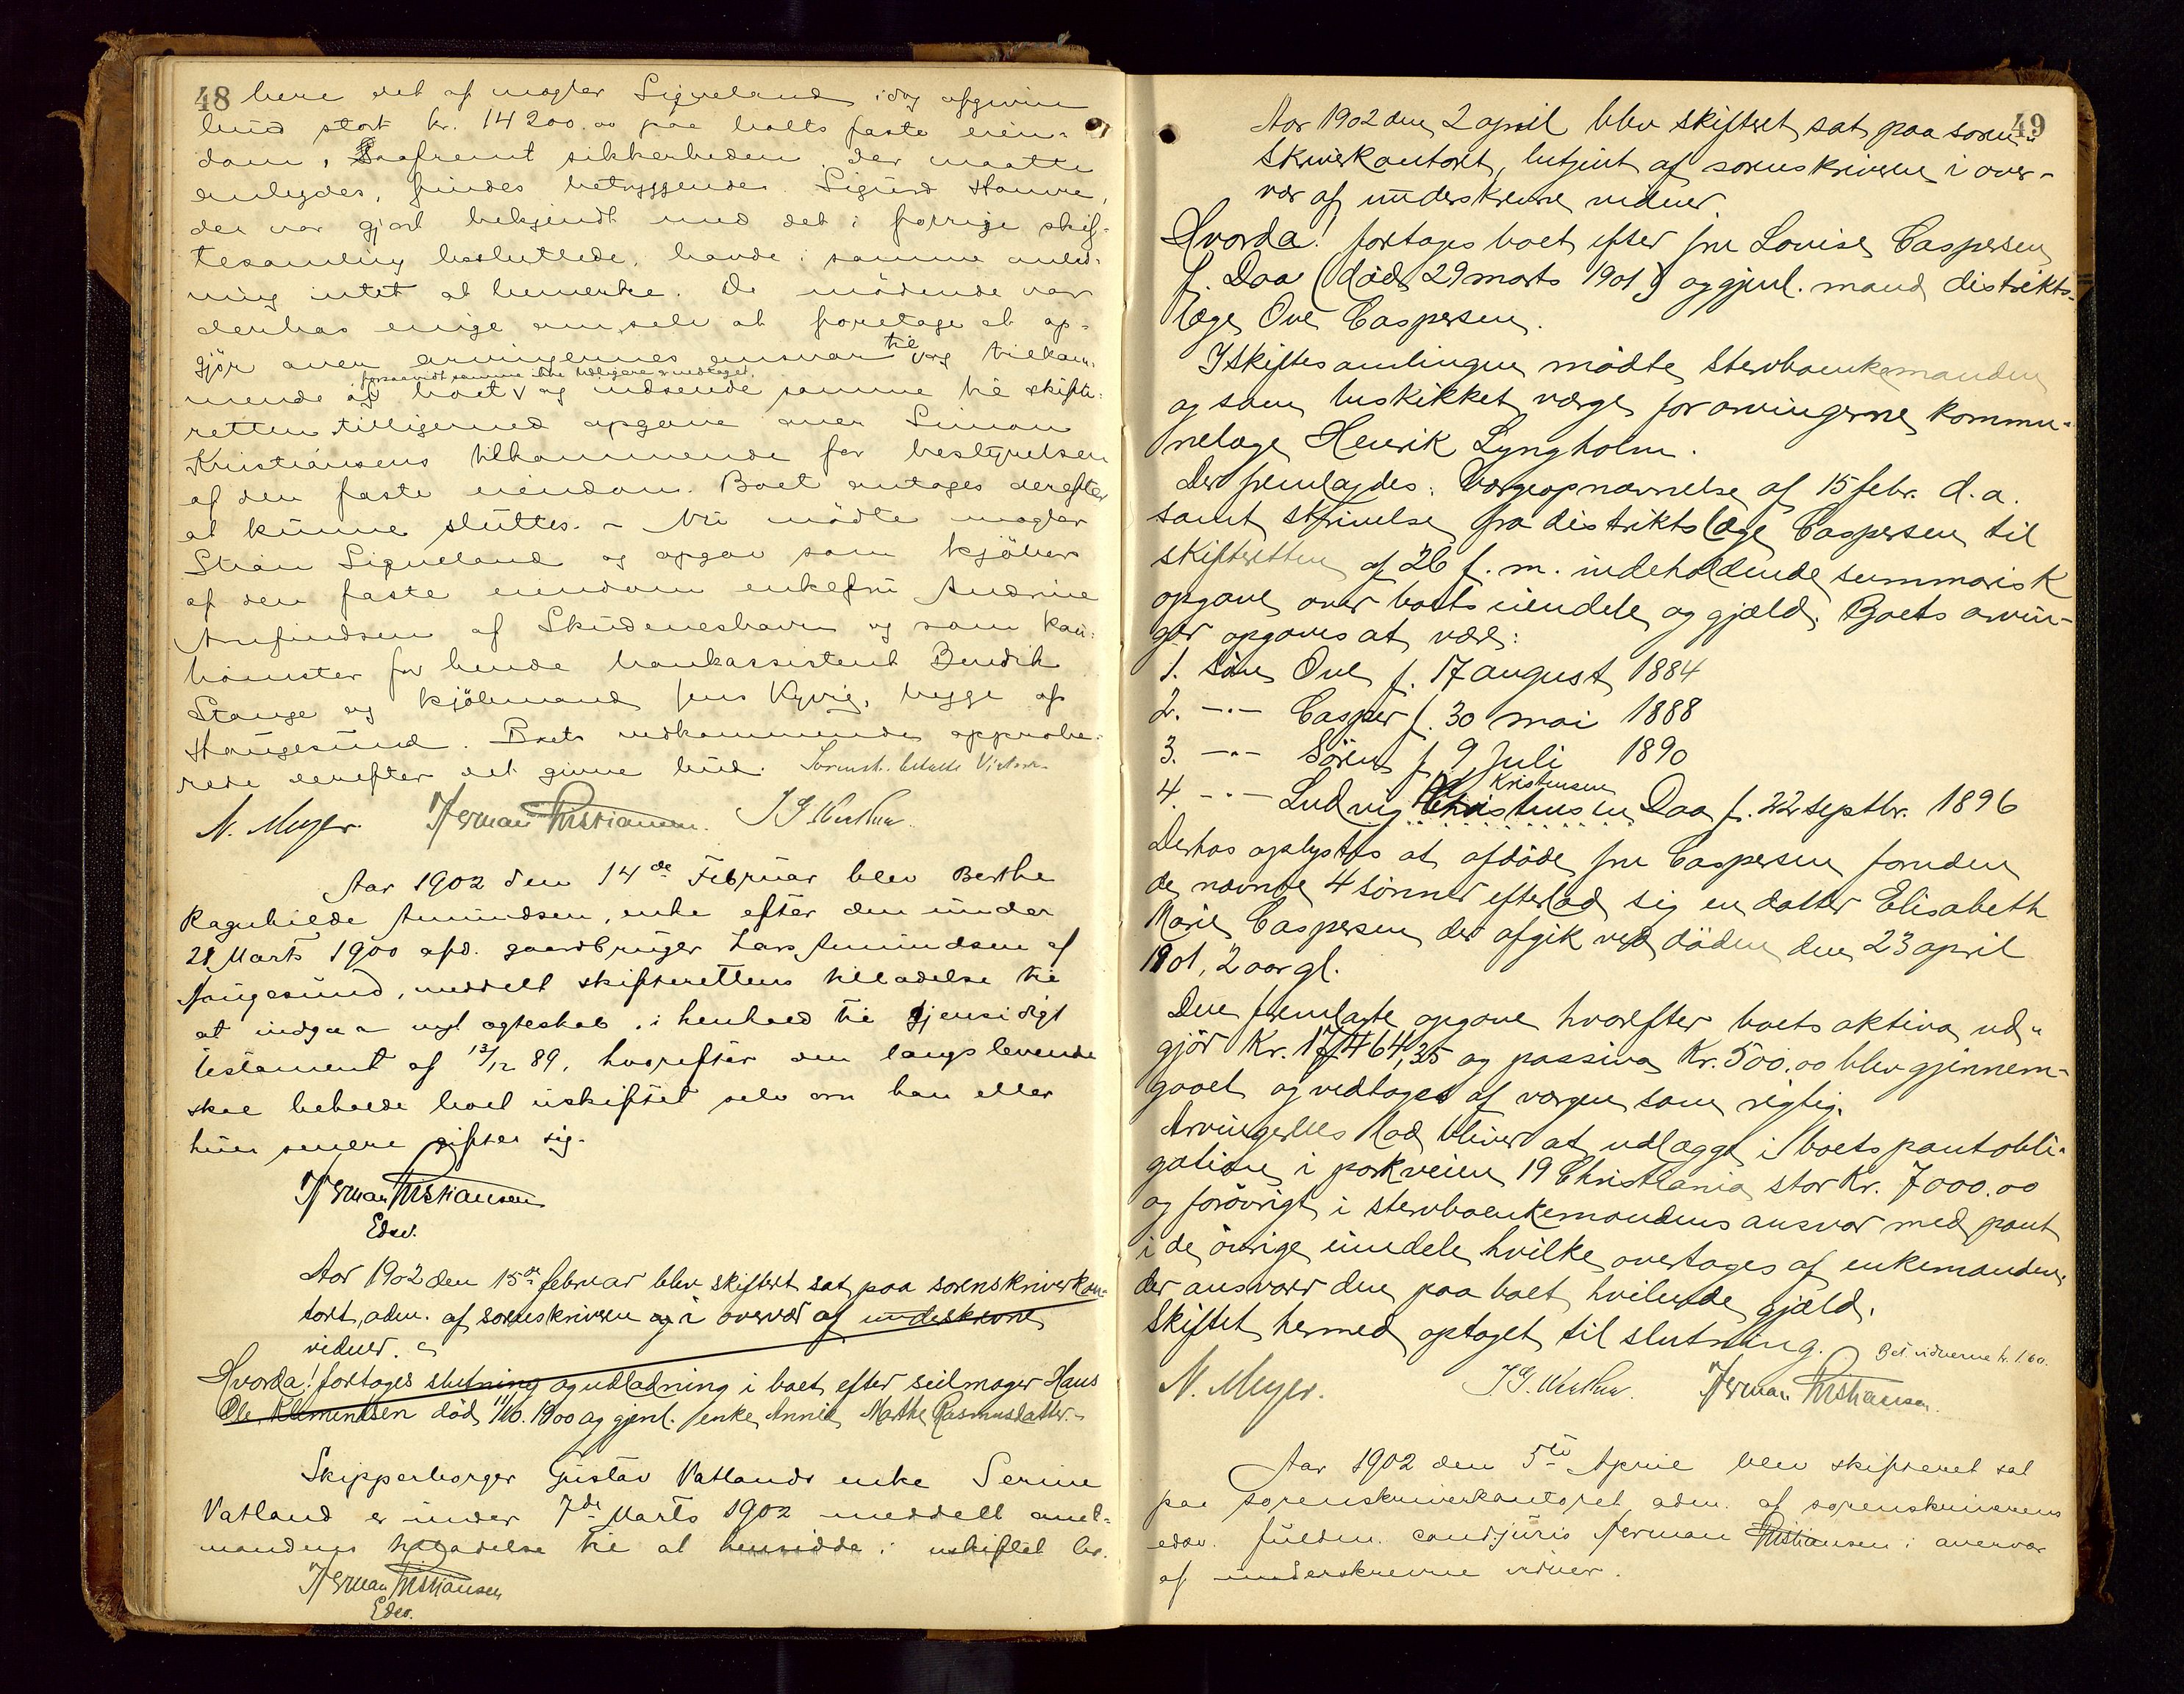 48
bene det af mægler Signeland idag afgivne
bud stort kr. 14200.00 paa boets faste eien-
dom, saafremt sikkerheden, der maatte
anbydes, findes betryggende. Sigurd Stamne,
der var gjort bekjendt med det i forrige skif-
tesamling besluttede, havde i samme anled-
ning intet at bemerke. De mödende var
derhos enige om selv at foretage et op-
gjör over arvingernes ansvar til og tilkom-
forsaavidt samme ikke tidligere er vedtaget,
mende af boet og indsende samme til skifte-
retten tilligemed opgave over Simon
Kristiansens tilkommende for bestyrelsen
af den faste eiendom. Boet antages derefter
at kunne sluttes. - Nu mödte mægler
Signeland og opgav som kjöber
af den faste eiendom enkefru Andrine
Arnfindsen af Skudeneshavn og som kau-
tionister for hende bankassistent Bendik
Stange og kjöbmand Jens Kyvig, begge af
Haugesund. Boets vedkommende approbe-
rede derefter det givne bud. Sorensk. betalte
N. Meyer. Herman Kristiansen.
Aar 1902 den 14de Februar blev Berthe
Ragnhilde Amundsen, enke efter den under
28 Marts 1900 afd. gaardbruger Lars Amundsen af
Haugesund, meddelt skifterettens tilladelse til
at indgaa nyt ægteskab, i henhold til gjensidigt
testament af 13/12 89, hvorefter den længstlevende
skal beholde boet uskiftet selv om han eller
hun senere gifter sig.
Herman Kristiansen
Edsv.
Aar 1902 den 15de februar blev skiftert sat paa sorenskriverkon-
tort, adm. af sorenskriveren og i overvær af underskrevne
vidner.
Hvorda! fortages slutning og udlodning i boet efter seilmager Hans
Ole Klementsen död 1900 og gjenl. enke Anne Marthe Rasmusdatter.
Skipperborger Gustav Vatlands enke Serine
Vatland er under 7de Marts 1902 meddelt amt-
mandens tilladelse til at hensidde i uskiftet bo.
Herman Kristiansen
Edsv.
49
Aar 1902 den 2 april blev skifteret sat paa soren-
skriverkontoret, betjent af sorenskriveren i over-
vær af underskrevne vidner.
Hvorda! fortages boet efter fru Louise Caspersen
f. Daa (död 29 marts 1901) og gjenl. mand distrikts-
læge Ove Caspersen.
I skiftesamlingen mödte stervboenkemanden
og som beskikket værge for arvingerne kommu-
nelæge Henrik Lyngholm.
Der fremlagdes: Værgeopnævnelse af 15 febr. d.a.
samt skrivelse fra distriktslæge Caspersen til
skifteretten af 26 f.m. indeholdende summarisk
opgave over boets eiendele og gjæld. Boets arvin-
ger opgaves at være:
1. sön Ove f. 17 august 1884
2. -"- Casper f. 30 mai 1888
3. -"- Sören f. 9 Juli 1890
Kristensen
4. -"- Ludvig Christensen Daa f. 22 septbr. 1896
Derhos oplystes at afdöde fru Caspersen foruden
de nævnte 4 sönner efterlod sig en datter Elisabeth
Marie Caspersen der afgik ved döden den 23 april
1901, 2 aar gl.
Den fremlagte opgave hvorefter boets aktiva ud-
gjör Kr. 17464,35 og passiva Kr. 500.00 blev gjennem-
gaaet og vedtaget af værgen som rigtig.
Arvingernes lod bliver at udlægge i boets pantobli-
gation i parkveien 19 Christiania stor Kr. 7000.00
og forövrigt i stervboenkemandens ansvar med pant
i de övrige eiendele hvilke overtages af enkemanden,
der ansvarer den paa boet hvilende gjæld.
Skiftet hermed optaget til slutning. Bet. vidnerne kr. 1.60.
N. Meyer. Herman Kristiansen.
Aar 1902 den 5te April blev skifteret sat
paa sorenskriverkontoret, adm. af sorenskriverens
edsv. fuldm. cand. juris Herman Kristiansen i overvær
af underskrevne vidner.